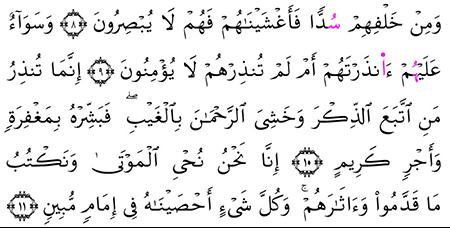 وَمِنْ خَلْفِهِمْ سُدًّا فَأَغْشَيْنَٰهُمْ فَهُمْ لَا يُبْصِرُونَ ۝٨ وَسَوَآءٌ
عَلَيْهُمْ ءَا۬نذَرْتَهُمْ أَمْ لَمْ تُنذِرْهُمْ لَا يُؤْمِنُونَ ۝٩ إِنَّمَا تُنذِرُ
مَنِ ٱتَّبَعَ ٱلذِّكْرَ وَخَشِىَ ٱلرَّحْمَٰنَ بِٱلْغَيْبِ ۖ فَبَشِّرْهُ بِمَغْفِرَةٍ
وَأَجْرٍ كَرِيمٍ ۝١٠ إِنَّا نَحْنُ نُحْىِ ٱلْمَوْتَىٰ وَنَكْتُبُ
مَا قَدَّمُوا۟ وَءَاثَٰرَهُمْ ۚ وَكُلَّ شَىْءٍ أَحْصَيْنَٰهُ فِىٓ إِمَامٍ مُّبِينٍ ۝١١